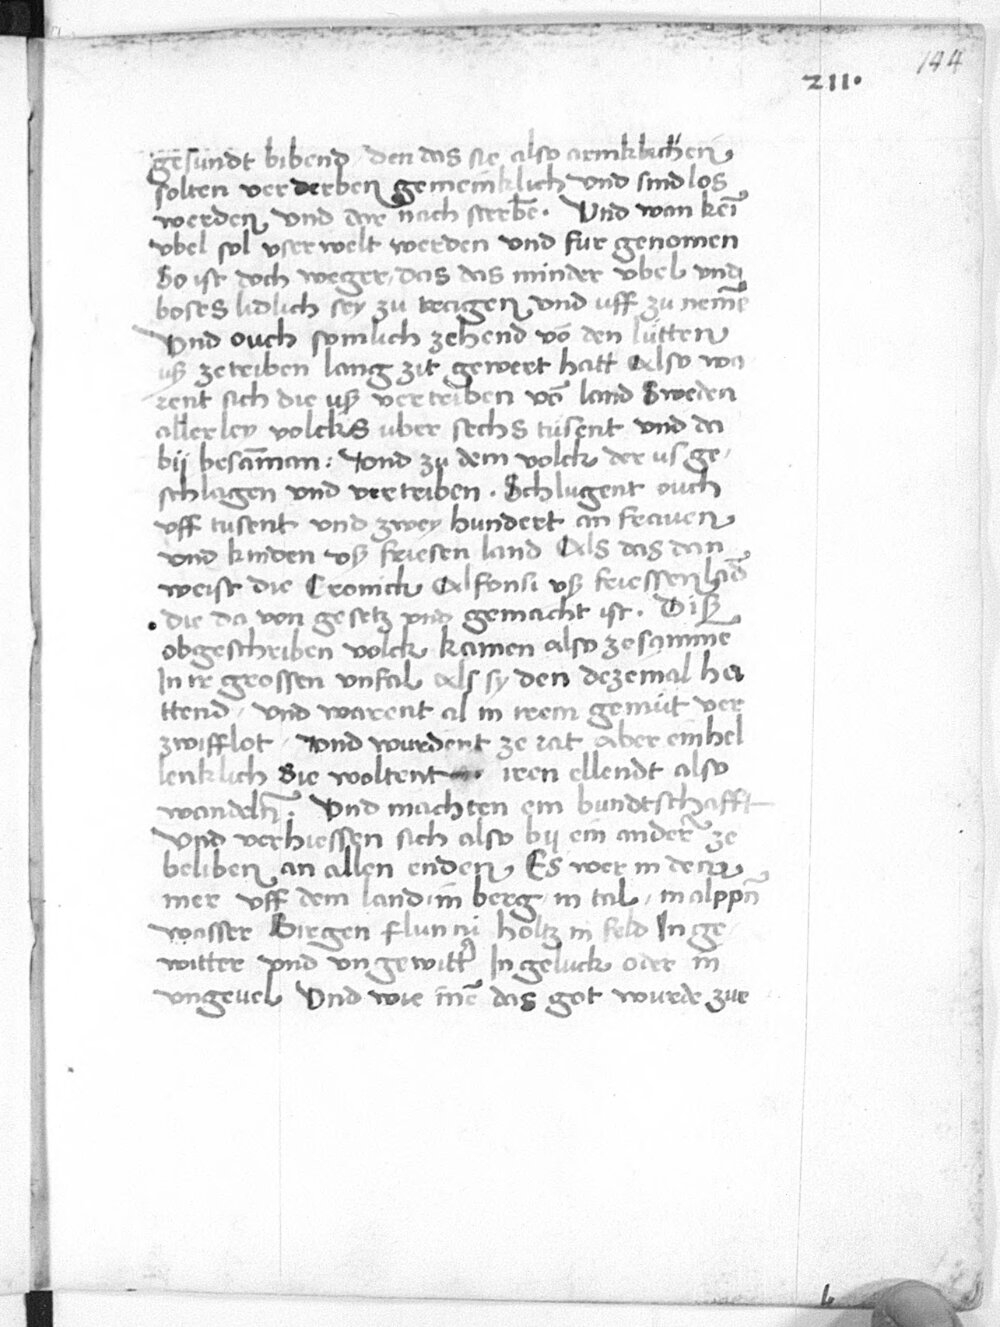 144
211.
gesundt bibend, den das sie also armklichen
solten verderben gemeinklich und sind los
werden und dar nach sterbē. Und wan kei̅
ubel sol userwelt werden und fur genomen
So ist doch weger, das das minder ubel und
boses lidlich sey zu tragen und uff zu nemē
Und ouch somlich zehend vō den lütten
uß ze triben lang zit gewert hatt Also wa
rent sich die uß vertriben vō land Sweden
allerley volcks uber sechs tusent und da
bij besam̅an: Und zu dem volck der us ge,
schlagen und vertriben. Schlugent ouch
uff tusent und zwey hundert an frauen
und kinden uß friesen land Als das dan
weist die Cronick Alfonsi uß friessen lād
die da von gesetz und gemacht ist. Diß
obgeschriben volck kamen also zesamme
In ir grossen unfal als sy den dezemal ha
ttend, und warent al in irem gemüt ver
zwifflot, und wurdent ze rat aber einhel
lenklich Sie woltent iren ellendt also
wandeln̅. Und machten ein bundtschafft
Und verhiessen sich also bij ein ander ze
beliben an allen enden, Es wer in dem
mer uff dem land, in berg, in tal, in alppn̅
wasser Birgen flun nü holtz in feld In ge
witter und ungewitt' In geluck oder in
ungevel Und wie īnē das got wurde zue